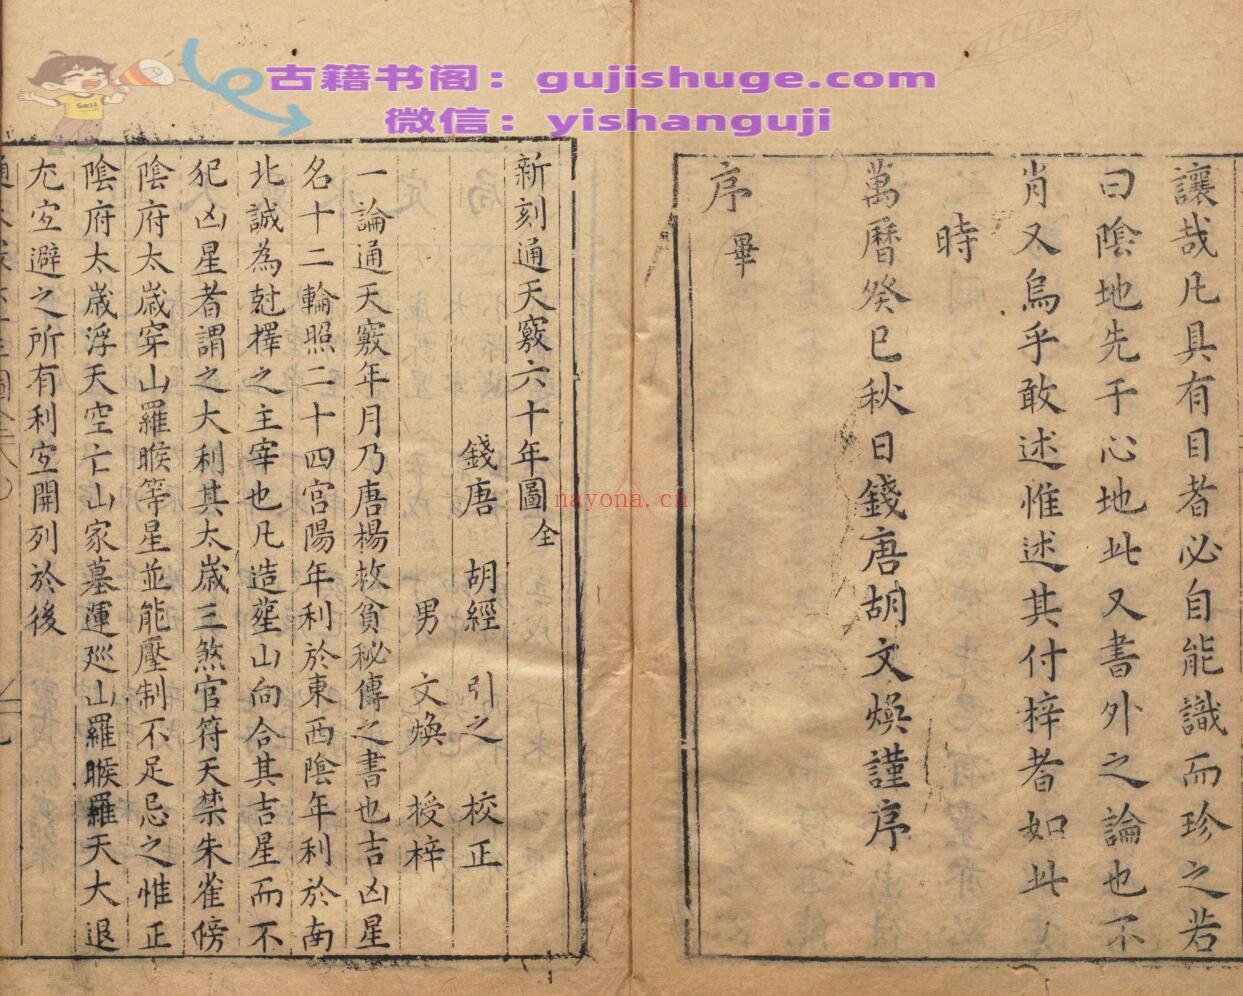 古籍书阁：gujishuge.com
微信：yishanguji
Sell
nayona.cn
讓哉凡具有目者必自能識而珍之若
曰陰地先于心地此又書外之論也不
肖又烏乎敢述惟述其付梓者如此
時
萬曆癸巳秋日錢唐胡文煥謹序
序畢
新刻通天竅六十年圖全
錢唐 胡經 引之 校正
男 文煥 授梓
一論通天竅年月乃唐楊救貧秘傳之書也吉凶星
名十二輪照二十四宫陽年利於東西陰年利於南
北誠為尅擇之主宰也凡造塟山向合其吉星而不
犯凶星者謂之大利其太歲三煞官符天禁朱雀傍
陰府太歲穿山羅睺等星並能壓制不足忌之惟正
陰府太歲浮天空亡山家墓運廵山羅睺羅天大退
尤宐避之所有利宐開列於後